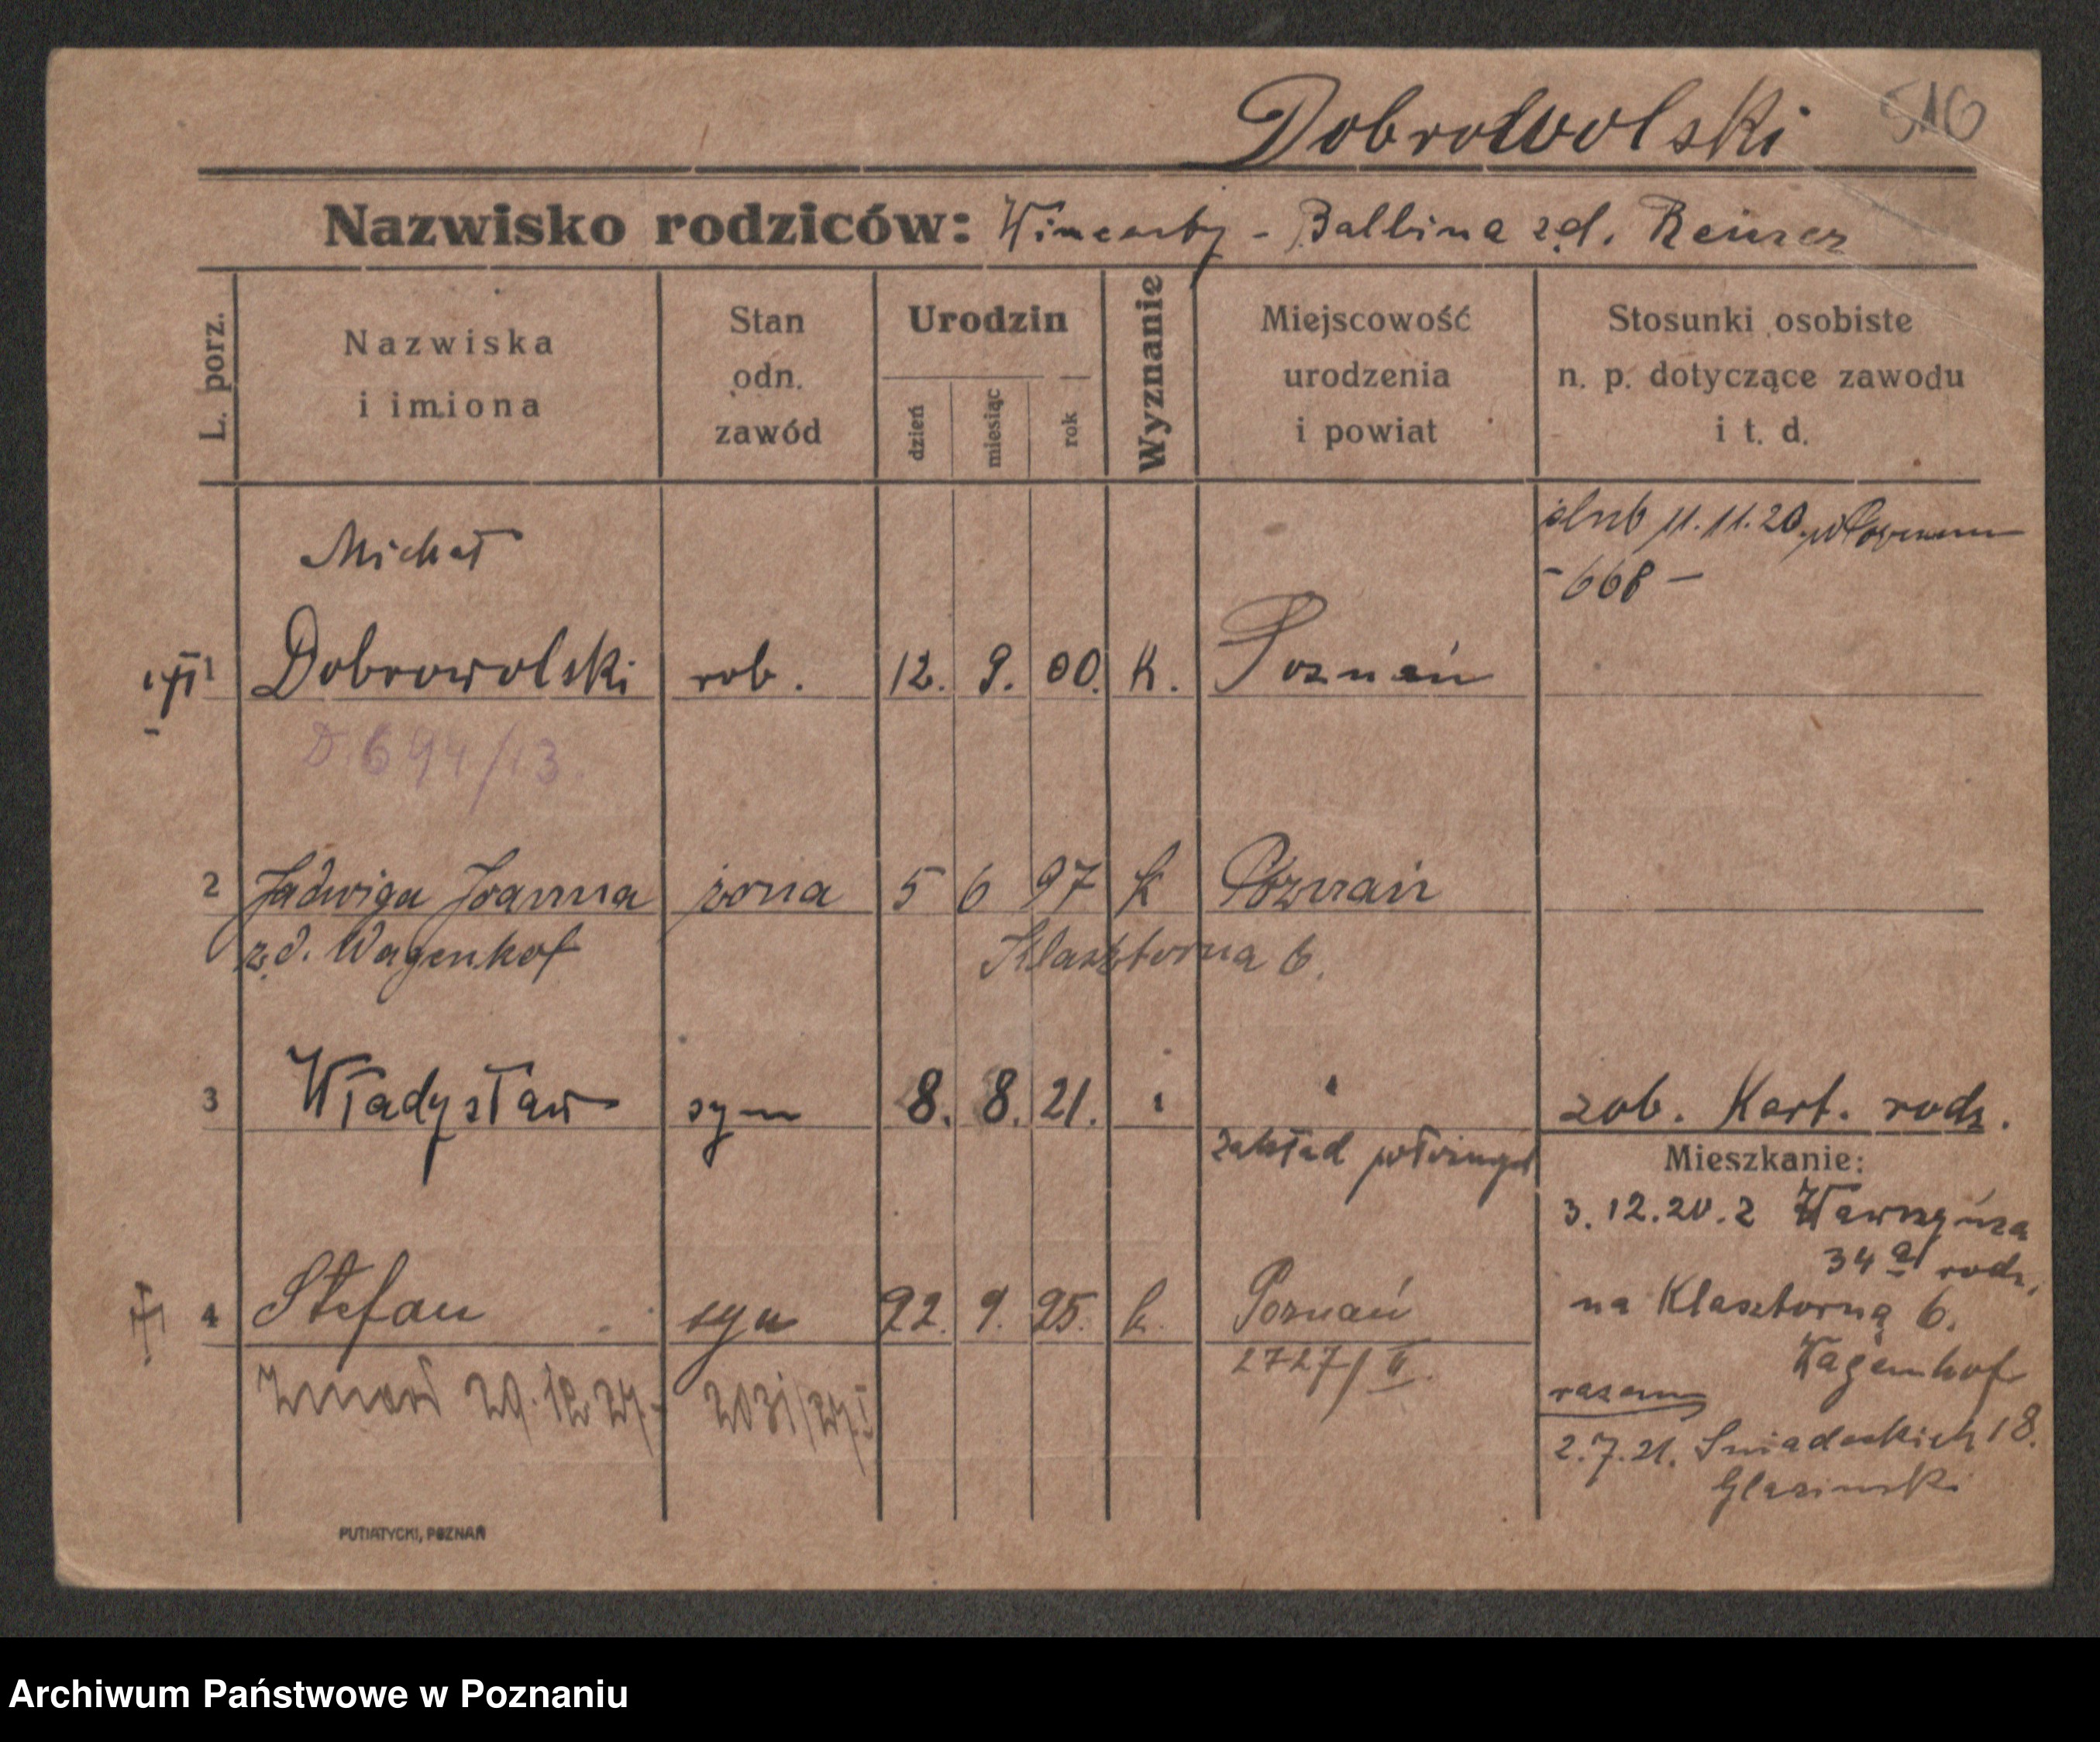 Dobrowolski 516
Nazwisko rodziców: Wincenty - Balbina zd. Reiszer
L. porz. Nazwiska i imiona Stan odn. zawód Urodzin dzień miesiąc rok Wyznanie Miejscowość urodzenia i powiat Stosunki osobiste n. p. dotyczące zawodu i t. d.
ślub 11.11.20. w Poznaniu
- 668 -
Michał
1 Dobrowolski rob. 12. 9. 00. k. Poznań
D. 694/13.
2 Jadwiga Joanna żona 5 6 97 k Poznań
z d. Wagenhof Klasztorna 6.
3 Władysław syn 8. 8. 21. zob. Kart. rodz.
zakład położnych
Mieszkanie:
3.12.20. z Wawrzyńca
34a rodz.
4 Stefan syn 22. 9. 25. k. Poznań
na Klasztorną 6.
2727/II.
Wagenhof
Zmarł 29.12.27. 2031/27.I
razem
2.7.21. Śniadeckich 18.
Glazinski
PUTIATYCKI, POZNAŃ
Archiwum Państwowe w Poznaniu